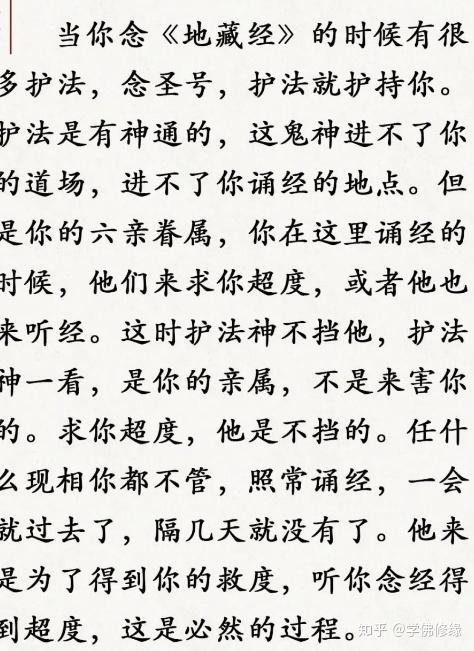 当你念《地藏经》的时候有很
多护法，念圣号，护法就护持你。
护法是有神通的，这鬼神进不了你
的道场，进不了你诵经的地点。但
是你的六亲眷属，你在这里诵经的
时候，他们来求你超度，或者他也
来听经。这时护法神不挡他，护法
神一看，是你的亲属，不是来害你
的。求你超度，他是不挡的。任什
么现相你都不管，照常诵经，一会
就过去了，隔几天就没有了。他来
是为了得到你的救度，听你念经得
到超度，这是必然的过程。
知乎 @学佛修缘